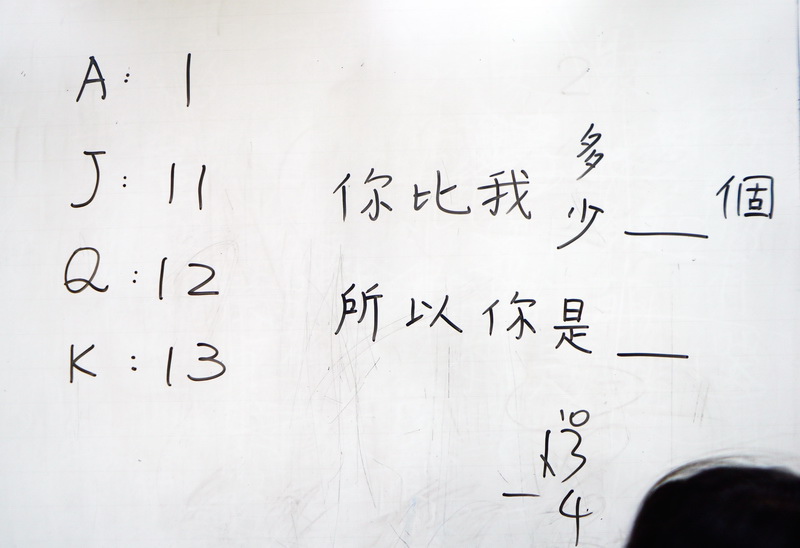 A: 1
J: 11
Q: 12
K: 13
你比我多少__個
所以你是__
10
13
- 4